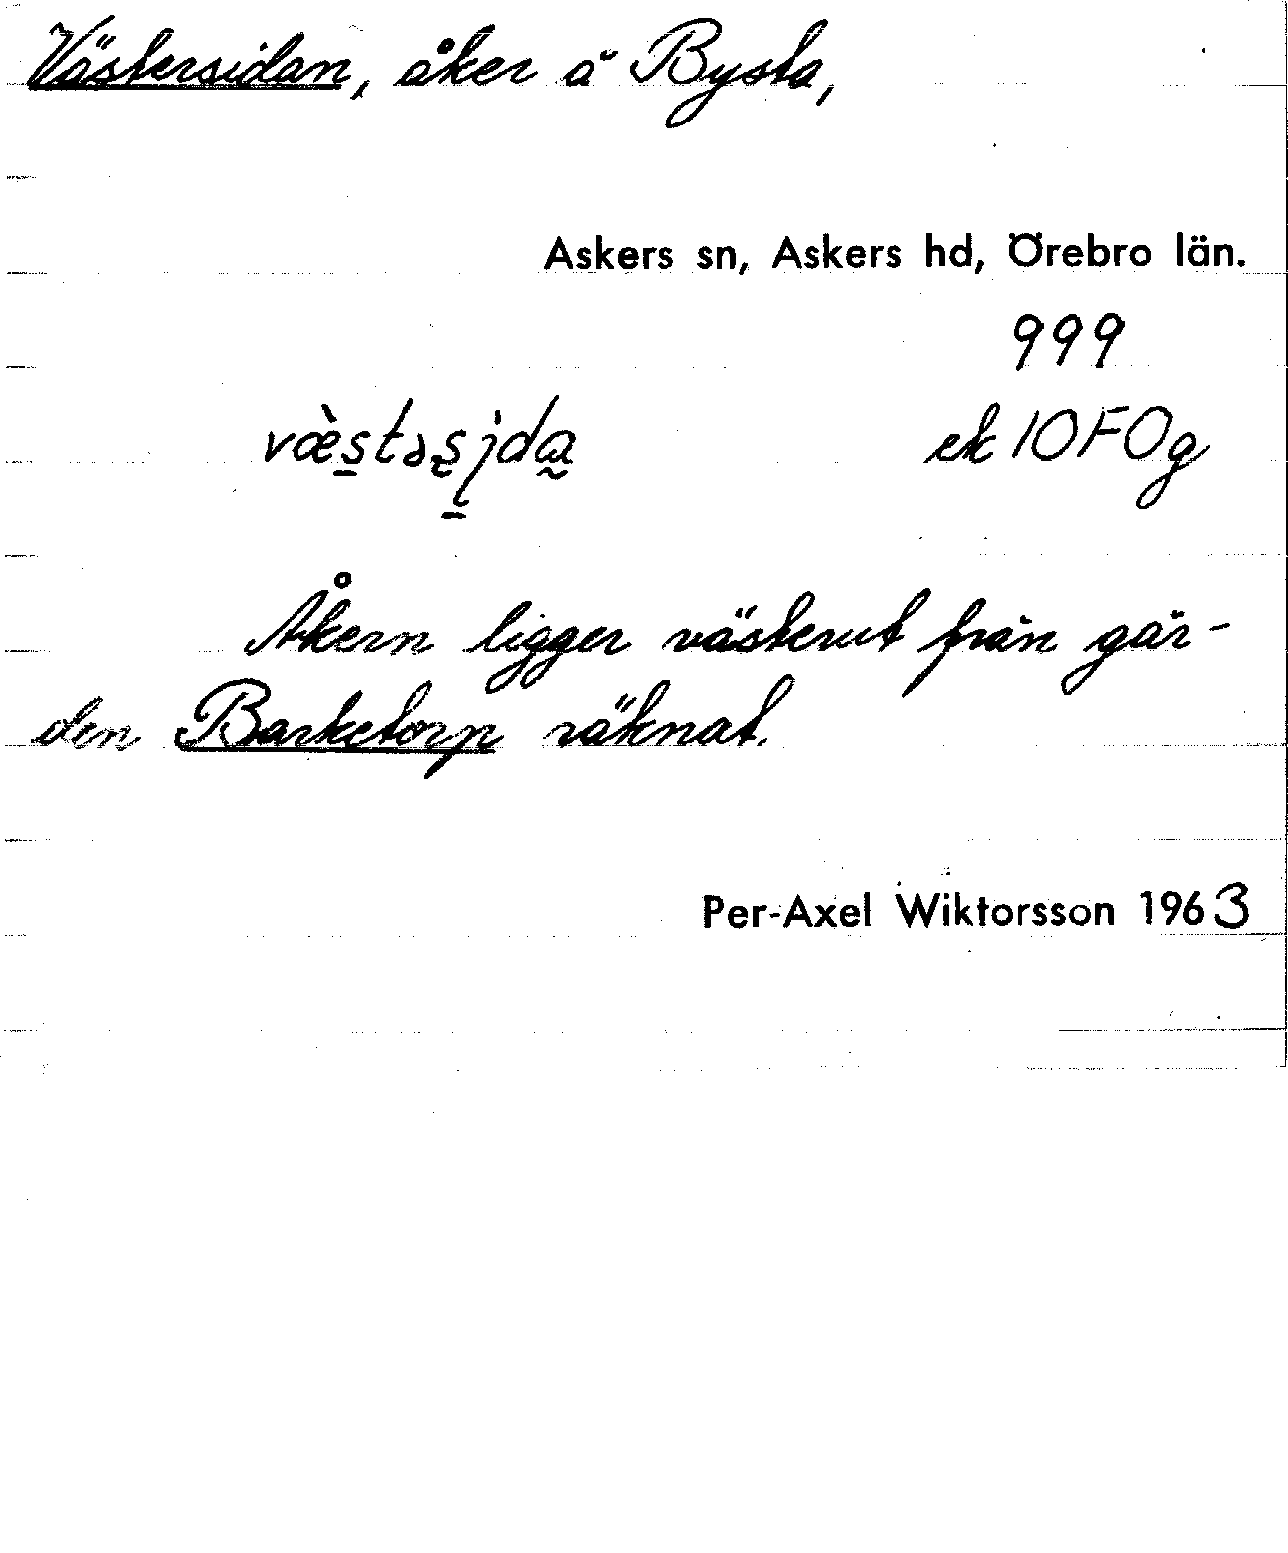 Västersidan, åker å Bysta,
Askers sn, Askers hd, Örebro län.
999
ek 10F0g
Åkern ligger västerut från går-
den Barketorp räknat.
Per-Axel Wiktorsson 1963